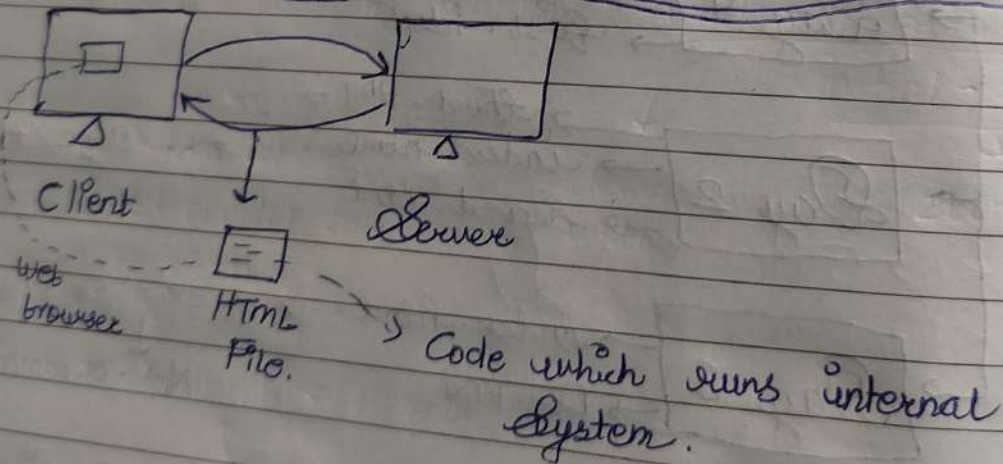 Client
Server
web
browser
HTML
File.
Code which runs internal
System.